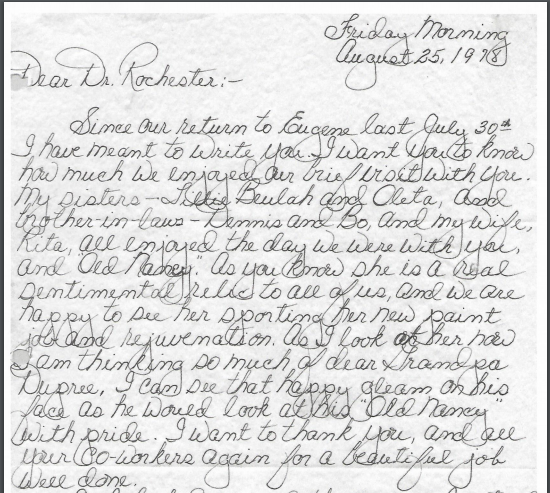 Friday Morning
August 25, 1978
Dear Dr. Rochester:-
Since our return to Eugene last July 30th
I have meant to write you. I want you to know
how much we enjoyed our brief visit with you.
My sisters - Beulah and Oleta, and
brother-in-laws - Dennis and Bo, and my wife,
Rita, all enjoyed the day we were with you,
and "Old Nancy." As you know she is a real
sentimental relic to all of us, and we are
happy to see her sporting her new paint
job and rejuvenation. As I look at her now
I am thinking so much of dear Grandpa
Dupree. I can see that happy gleam on his
face as he would look at his "Old Nancy"
with pride. I want to thank you, and all
your Co-workers again for a beautiful job
well done.